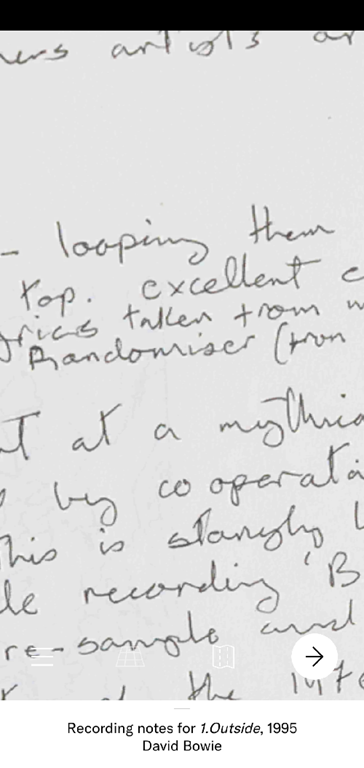 artists ar
- looping them
top. excellent c
rics taken from w
Randomiser (from
at a mythic
by cooperati
This is stangly
le recording 'B
re-sample and
the inte
Recording notes for 1.Outside, 1995
David Bowie